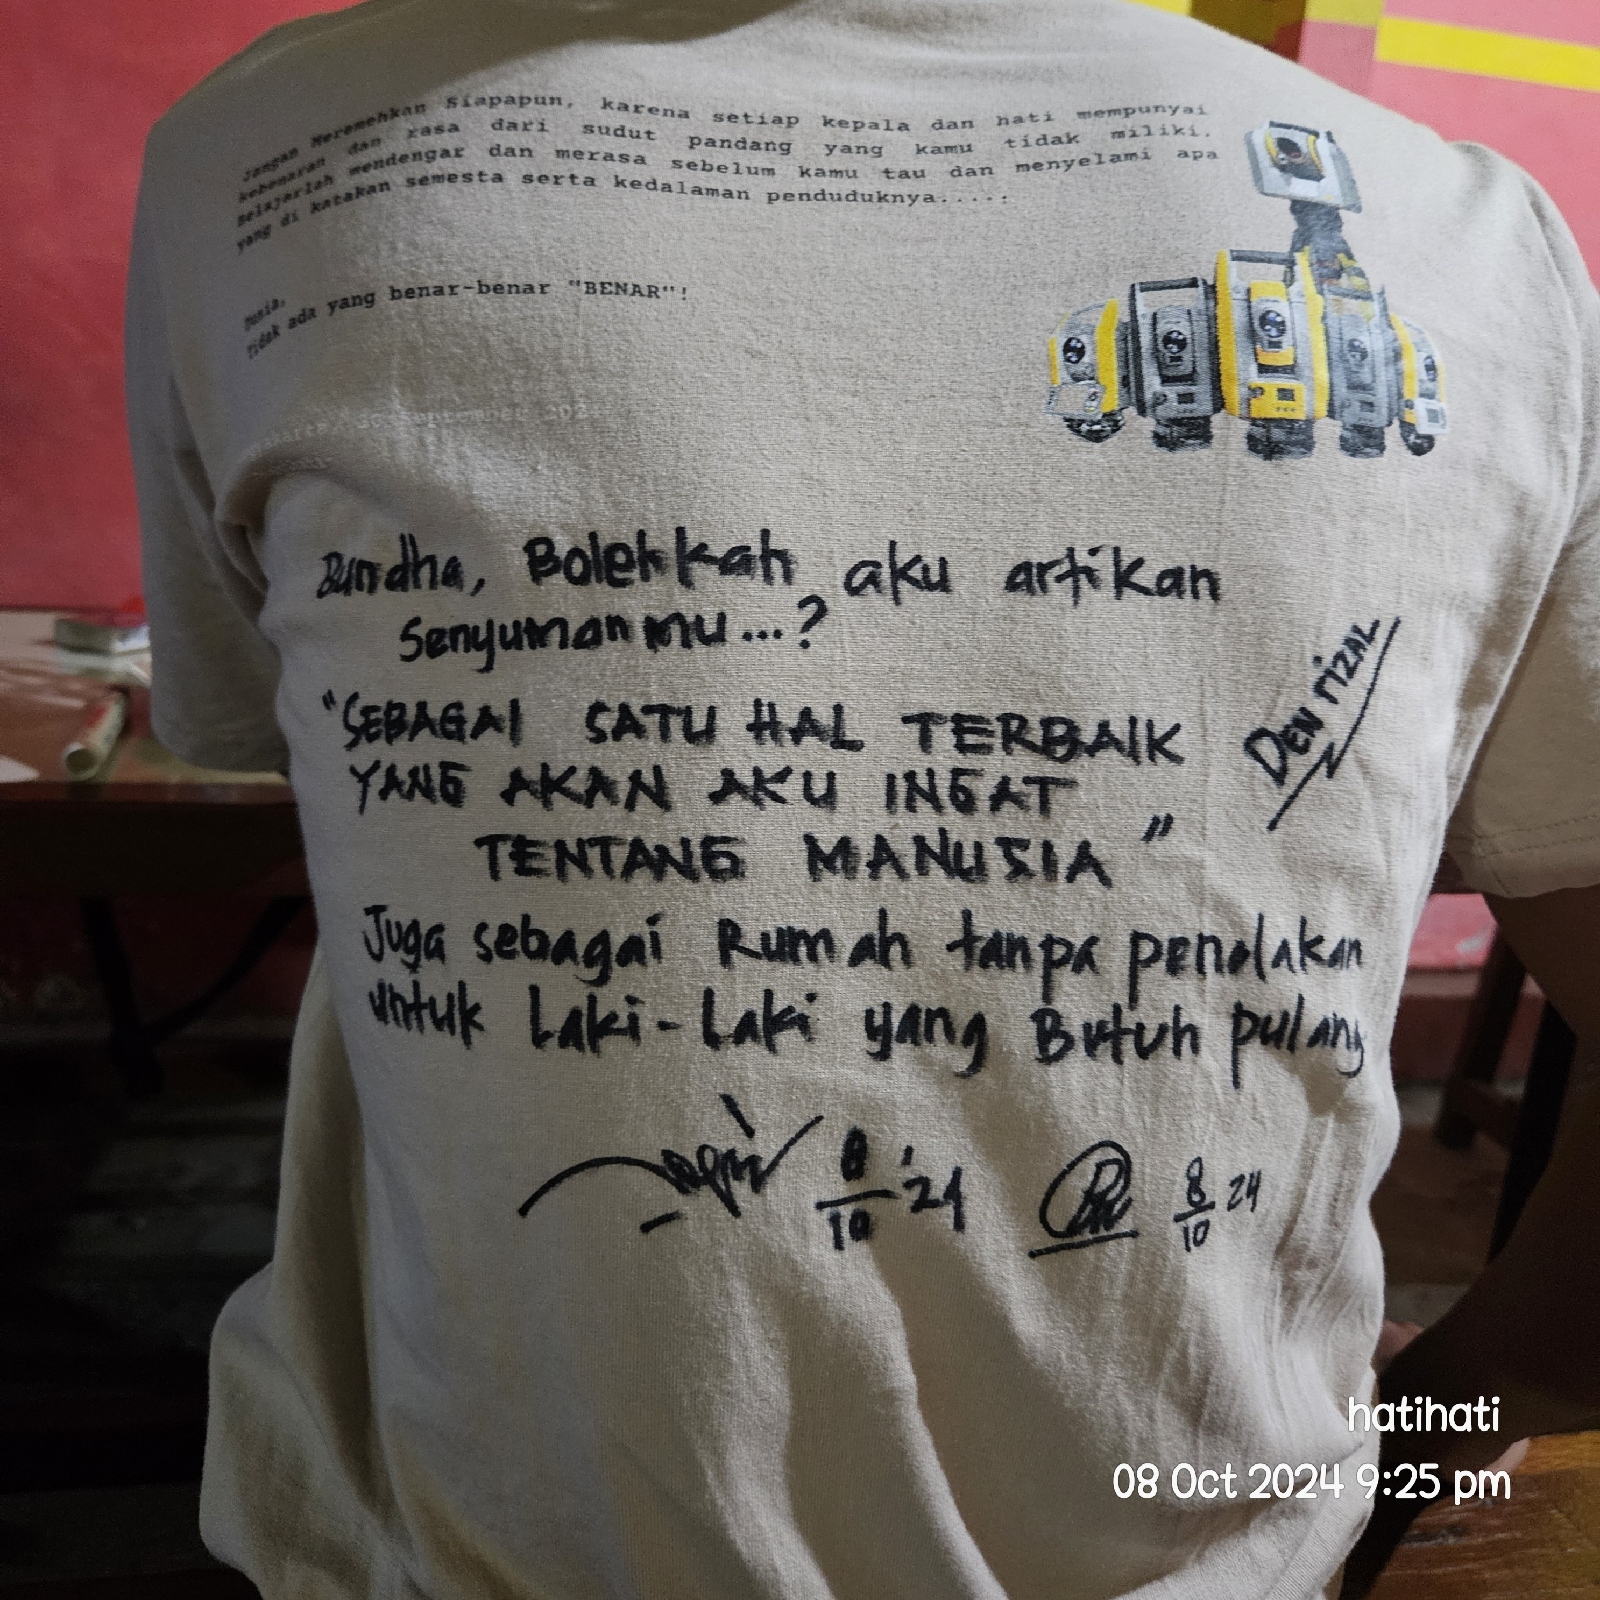 Jangan Meremehkan Siapapun, karena setiap kepala dan hati mempunyai
kebenaran dan rasa dari sudut pandang yang kamu tidak miliki.
Belajarlah mendengar dan merasa sebelum kamu tau dan menyelami apa
yang di katakan semesta serta kedalaman penduduknya....:
Dunia,
Tidak ada yang benar-benar "BENAR"!
September 202
Bundha, Bolehkah aku artikan
Senyumanmu...?
"SEBAGAI SATU HAL TERBAIK
YANG AKAN AKU INGAT
TENTANG MANUSIA"
DEN RIZAL
Juga sebagai Rumah tanpa penolakan
untuk Laki-Laki yang Butuh pulang
8/10 '24
8/10 24
hatihati
08 Oct 2024 9:25 pm